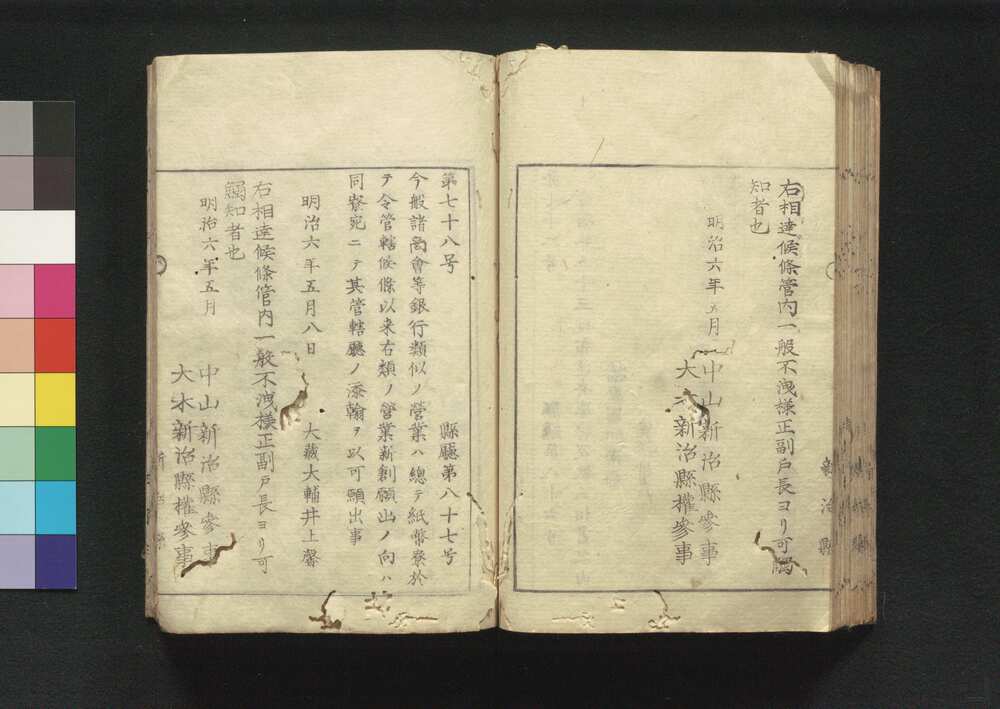 右相達候條管内一般不洩様正副戸長ヨリ可觸
知者也
明治六年五月
中山新治縣參事
大木新治縣權參事
新治縣
第七十八号
縣廳第八十七号
今般諸商會等銀行類似ノ營業ハ總テ紙幣寮於
テ令管轄候條以来右類ノ營業新創願出ノ向ハ
同寮宛ニテ其管轄廳ノ添翰ヲ以可願出事
明治六年五月八日
大藏大輔井上馨
右相達候條管内一般不洩様正副戸長ヨリ可
觸知者也
明治六年五月
中山新治縣參事
大木新治縣權參事